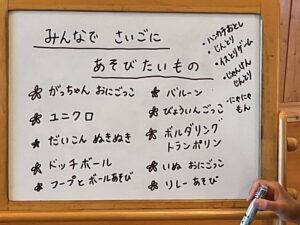 みんなで さいごに
あそびたいもの
がっちゃん おにごっこ
ユニクロ
だいこん ぬきぬき
ドッチボール
フープと ボールあそび
バルーン
びょういんごっこ
ボルダリング
トランポリン
いぬ おにごっこ
リレーあそび
・ハンカチおとし
・じんとり
・イスとりゲーム
・じゃんけん
じんとり
・にゃにゃ
もん